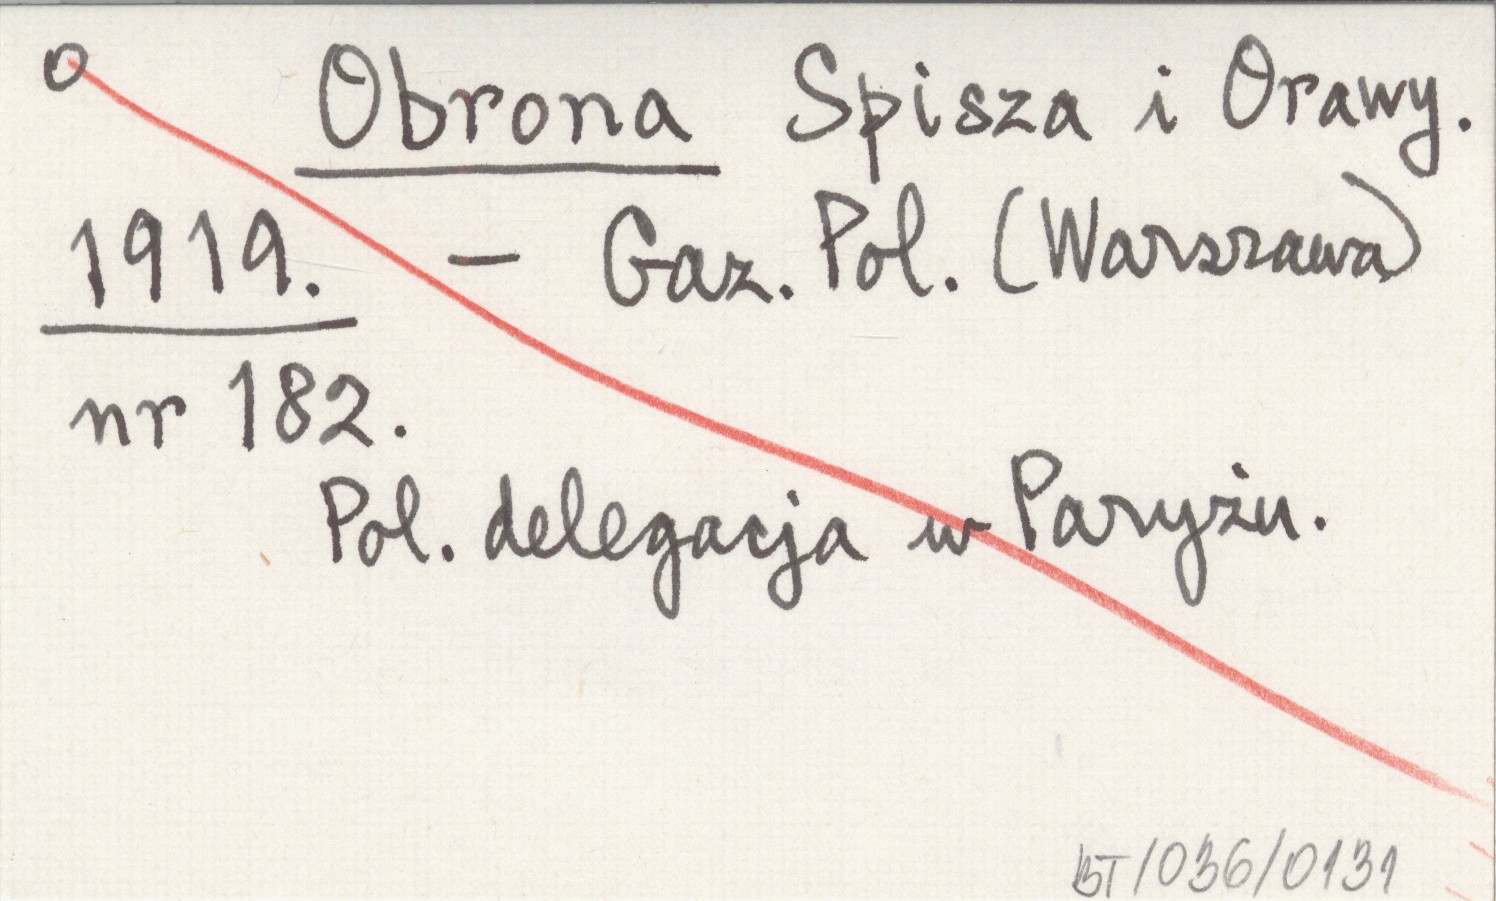 O Obrona Spisza i Orawy.
1919. – Gaz. Pol. (Warszawa)
nr 182.
Pol. delegacja w Paryżu.
BT/036/0131